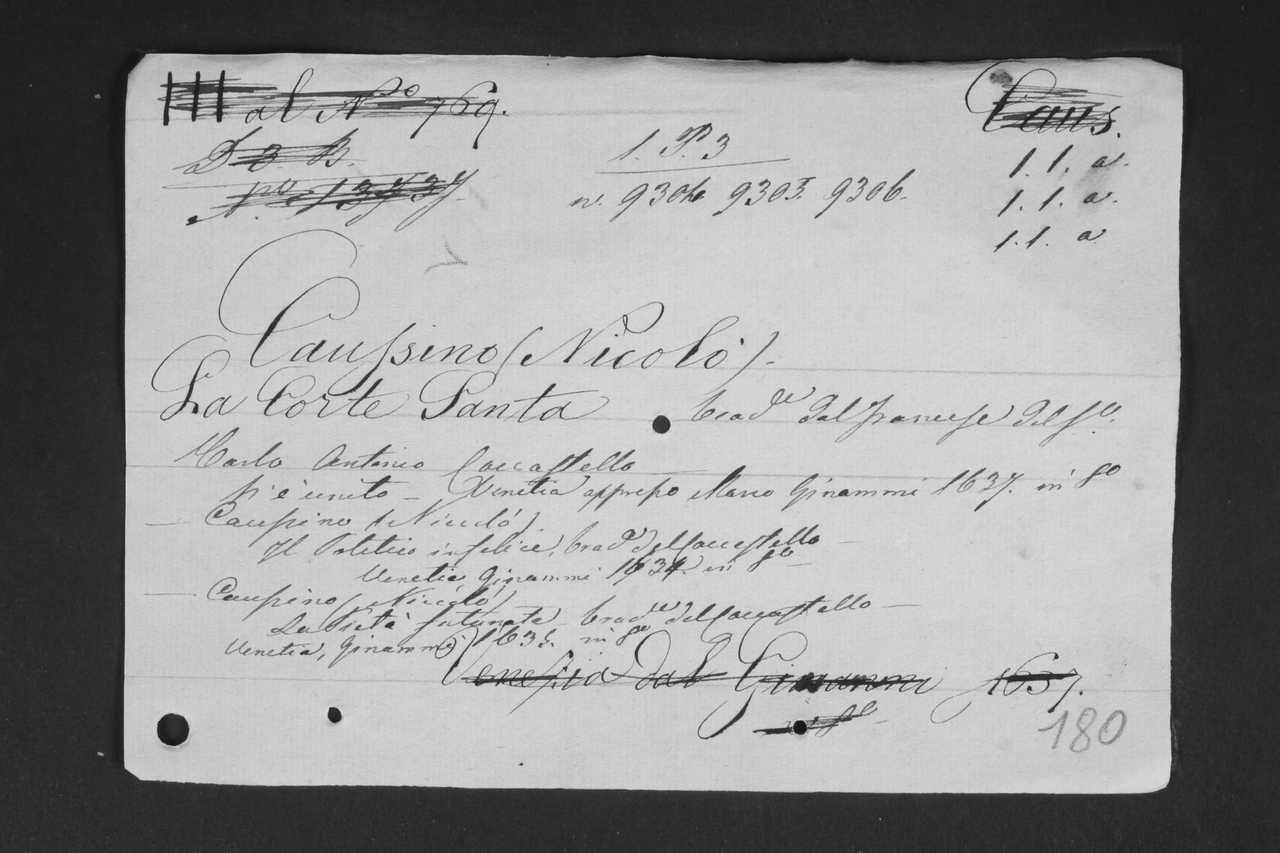 al N.º 769.
Caus.
D 3 B.
1. P. 3
1. 1. a.
N.º 13737.
n. 9304 9305. 9306.
1. 1. a.
1. 1. a
Caussino (Nicolò).
La Corte Santa trad.e dal francese del S.r
Carlo Antonio Coccastello
si è unito – Venetia appresso Marco Ginammi 1637. in 8º
— Caussino (Niccoló).
Il Politico infelice, trad.e del Coccastello —
Venetia, Ginammi 1634. in 8º
— Caussino (Niccoló)
La Pietà fortunata trad.e del Coccastello —
Venetia, Ginammi) 1635. in 8º
Venezia dal Ginammi 1637.
in 8º
180